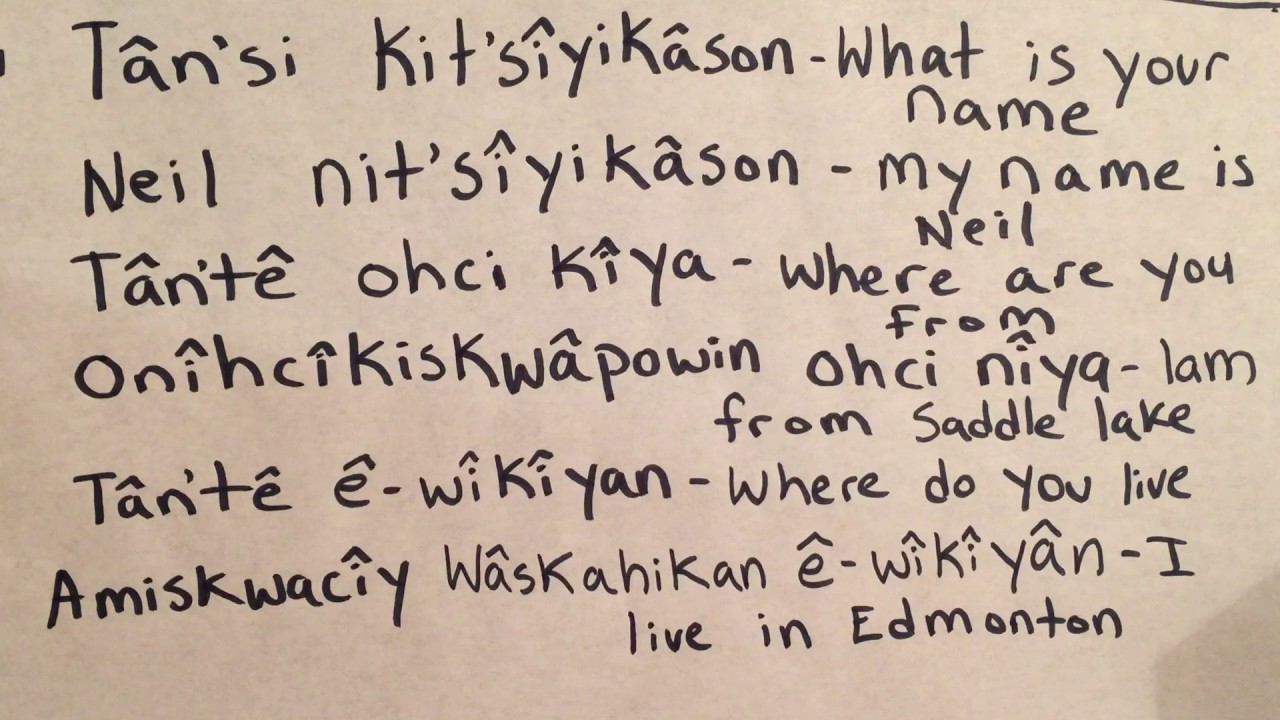 Tân'si Kit'sîyikâson - What is your
name
Neil nit'sîyikâson - my name is
Neil
Tân'tê ohci Kîya - Where are you
from
Onîhcîkiskwâpowin ohci nîya - I am
from Saddle lake
Tân'tê ê-wîkîyan - Where do you live
Amiskwacîy Wâskahikan ê-wîkîyân - I
live in Edmonton